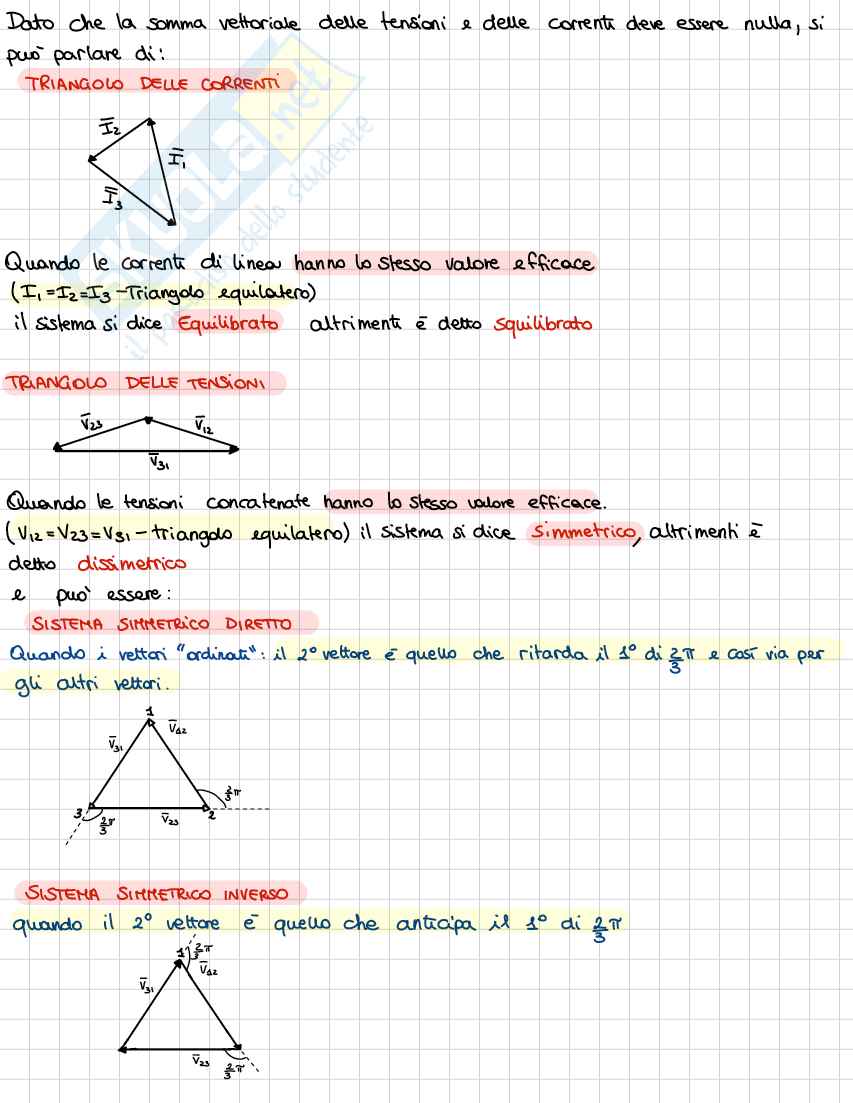 Dato che la somma vettoriale delle tensioni e delle correnti deve essere nulla, si
può parlare di:
TRIANGOLO DELLE CORRENTI
I̅2
I̅1
I̅3
SKUOLA.net
il paradiso dello studente
Quando le correnti di linea hanno lo stesso valore efficace
(I1=I2=I3-Triangolo equilatero)
il sistema si dice Equilibrato altrimenti è detto squilibrato
TRIANGOLO DELLE TENSIONI
V̅23 V̅12
V̅31
Quando le tensioni concatenate hanno lo stesso valore efficace.
(V12=V23=V31-triangolo equilatero) il sistema si dice simmetrico, altrimenti è
detto dissimetrico
e può essere:
SISTEMA SIMMETRICO DIRETTO
Quando i vettori "ordinati": il 2° vettore è quello che ritarda il 1° di 2/3 π e così via per
gli altri vettori.
1
V̅12
V̅31
2/3 π
3 2
2/3 π
V̅23
SISTEMA SIMMETRICO INVERSO
quando il 2° vettore è quello che anticipa il 1° di 2/3 π
1 2/3 π
V̅12
V̅31
V̅23 2/3 π